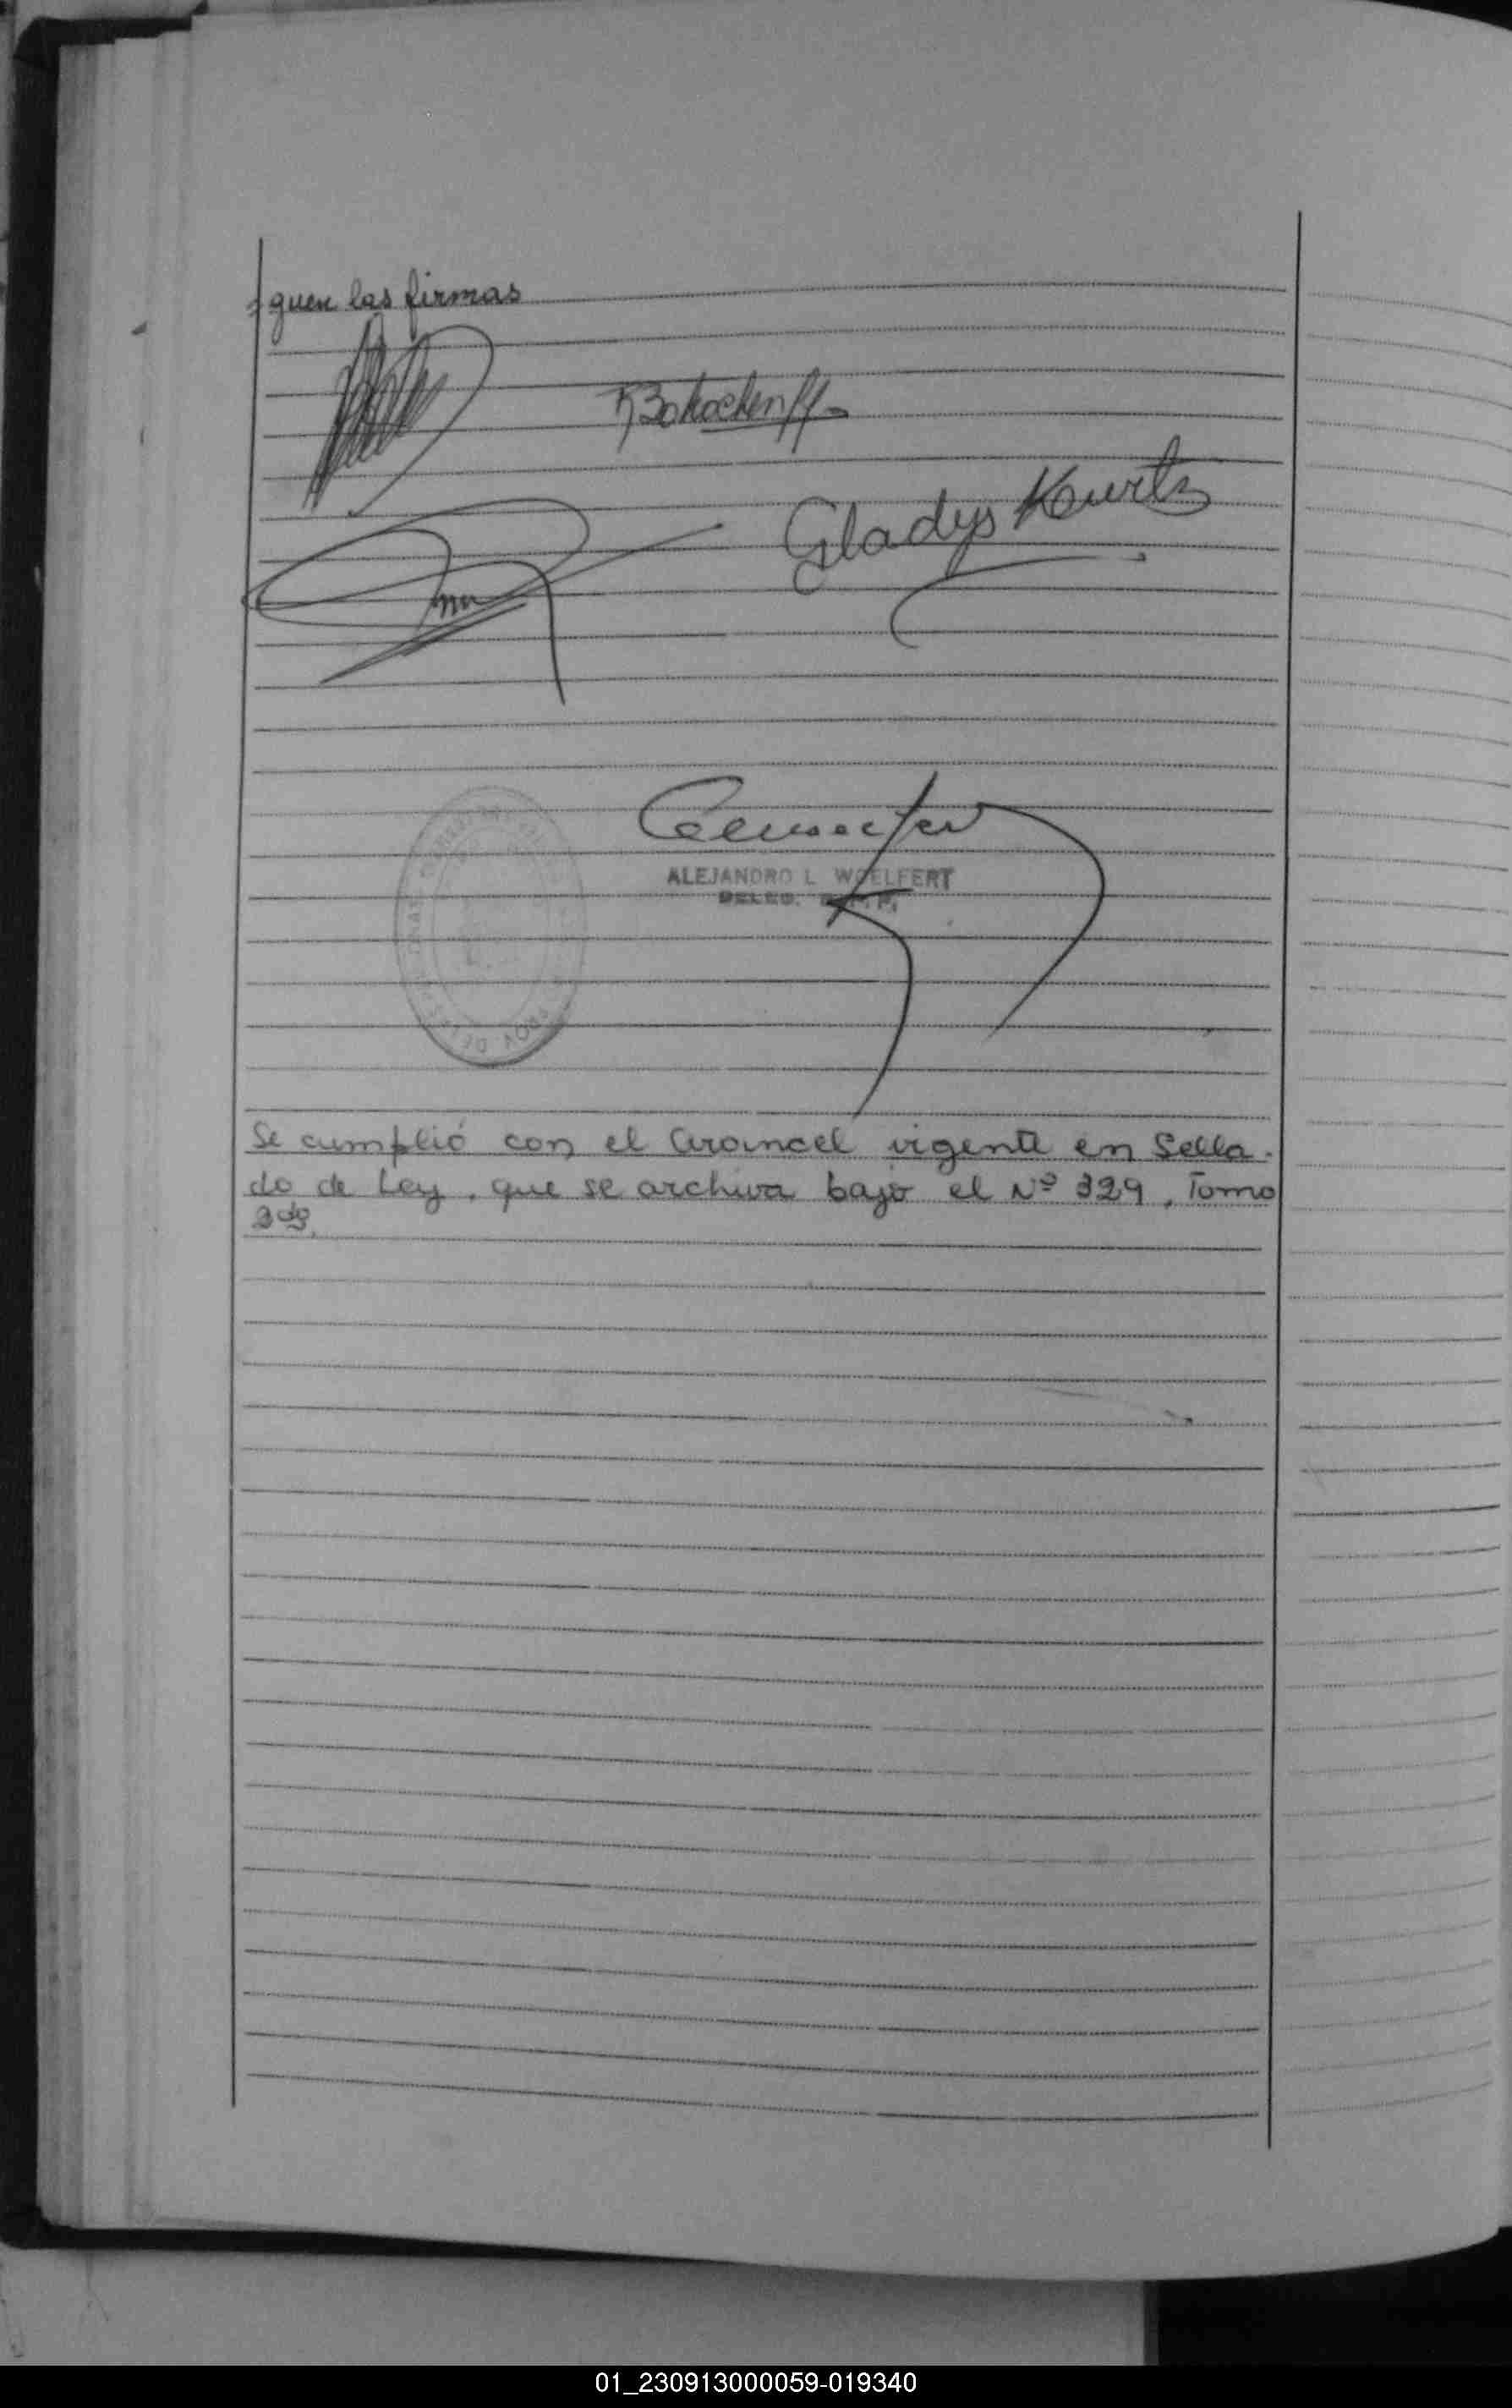 guen las firmas
Gladys Kurtz
ALEJANDRO L WOELFERT
DELEG.
Se cumplió con el Arancel vigente en Sella-
do de Ley, que se archiva bajo el Nº 329, Tomo
2do.
01_230913000059-019340